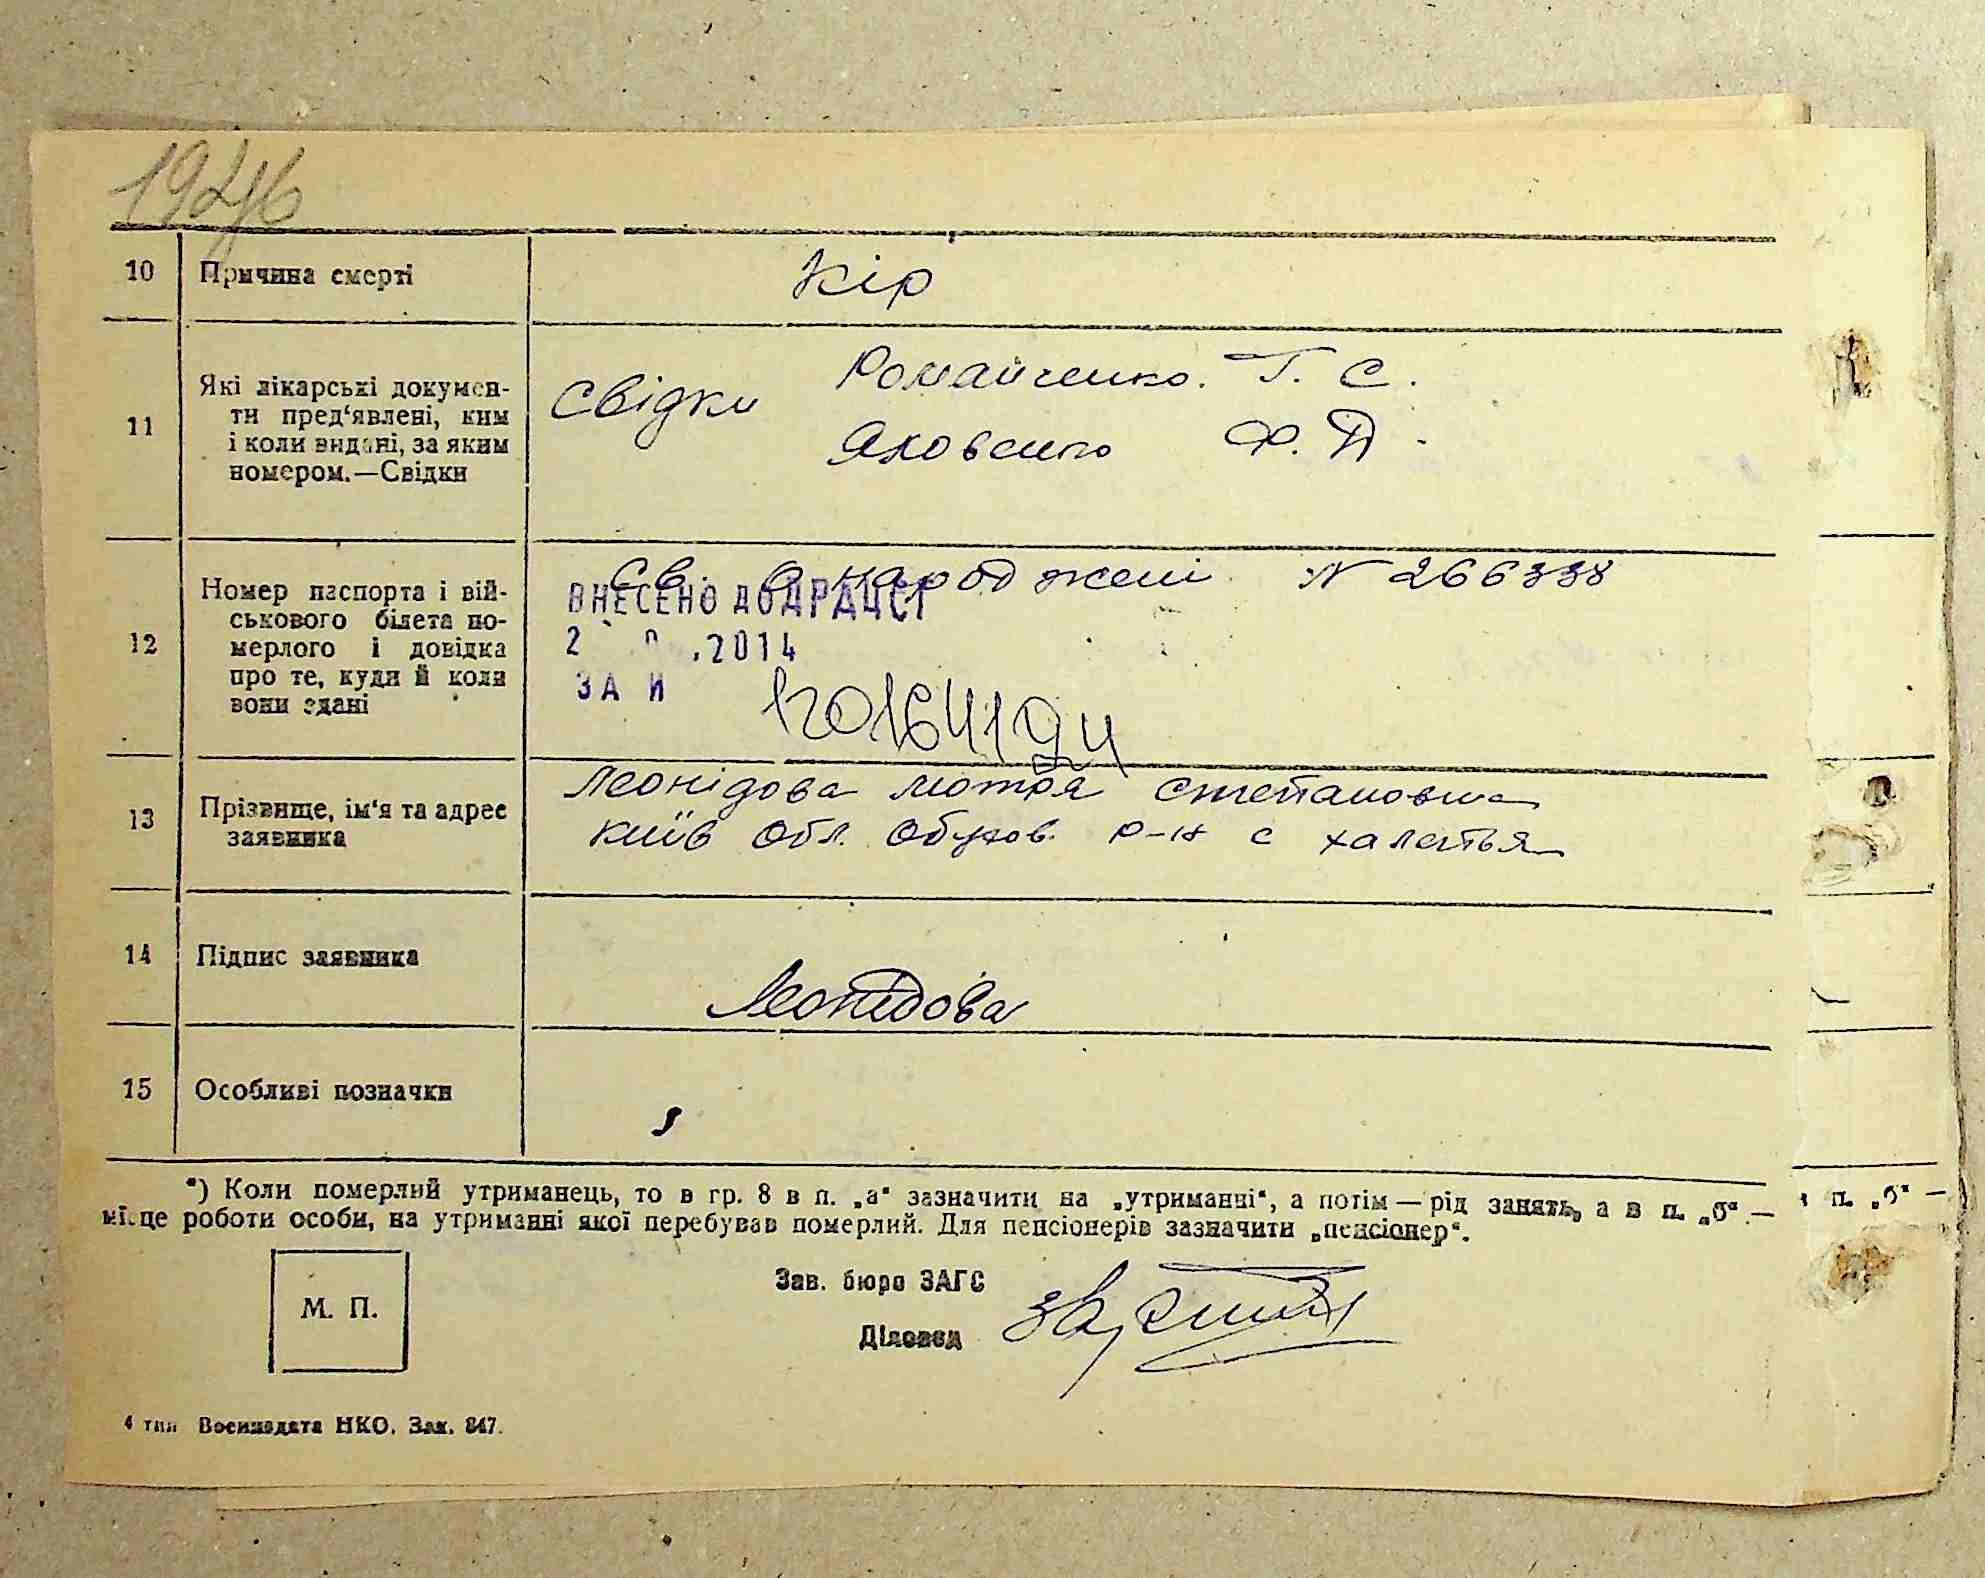 1946
10 Причина смерті Кір
11 Які лікарські докумен-
ти пред‘явлені, ким
і коли видані, за яким
номером.—Свідки
Свідки Романченко. Г. С.
Яковенко Ф. Д.
12 Номер паспорта і вій-
ськового білета по-
мерлого і довідка
про те, куди й коли
вони здані
Св. о народжені N 266338
ВНЕСЕНО ДО ДРАЦСГ
2 .2014
ЗА И
13 Прізвище, ім‘я та адрес
заявника
Леонідова Мотря Степановна
Київ Обл. Обухов. р-н с Халепья
14 Підпис заявника Леонідова
15 Особливі позначки
*) Коли померлий утриманець, то в гр. 8 в п. „а“ зазначити на „утриманні“, а потім — рід занять, а в п. „б“ —
місце роботи особи, на утриманні якої перебував померлий. Для пенсіонерів зазначити „пенсіонер“.
п. „б“ —
М. П.
Зав. бюро ЗАГС
Діловод
4 тип Воениздата НКО. Зак. 847.